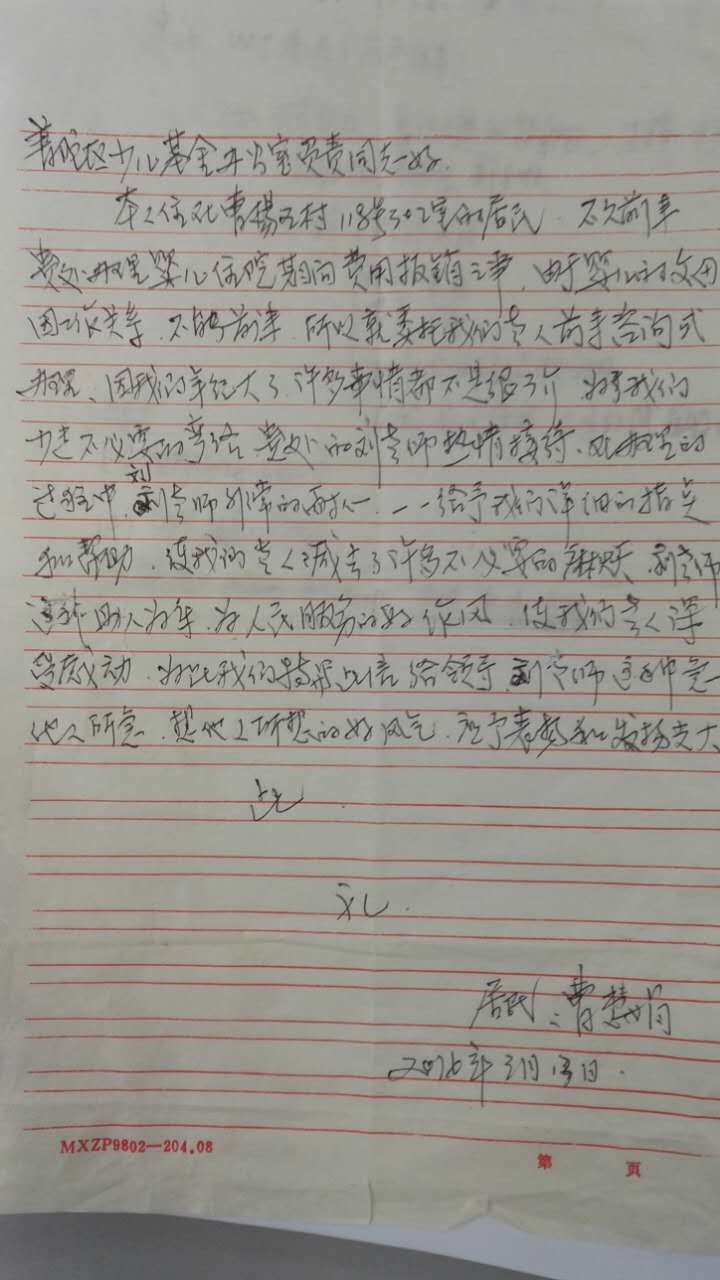 普陀区少儿基金办公室负责同志好.
本人住在曹杨五村118号302室的居民.不久前来
贵处办理婴儿住院期间费用报销之事,由于婴儿的父母
因工作关系,不能前来,所以就委托我们老人前来咨询或
办理、因我们年纪大了,许多事情都不是很了介,为了我们
少走不必要的弯路,贵处的刘老师热情接待,在办理的
过程中,刘老师非常的耐心,一一给予我们详细的指点
和帮助,使我们老人减去了许多不必要的麻烦,刘老师
这种助人为乐,为人民服务的好作风,使我们老人深
受感动,为此我们特写此信给领导,刘老师这种急
他人所急,想他人所想的好风气,应予表扬和发扬光大
此
礼.
居民:曹慧娟
月13日.
MXZP9802—204.08
第 页